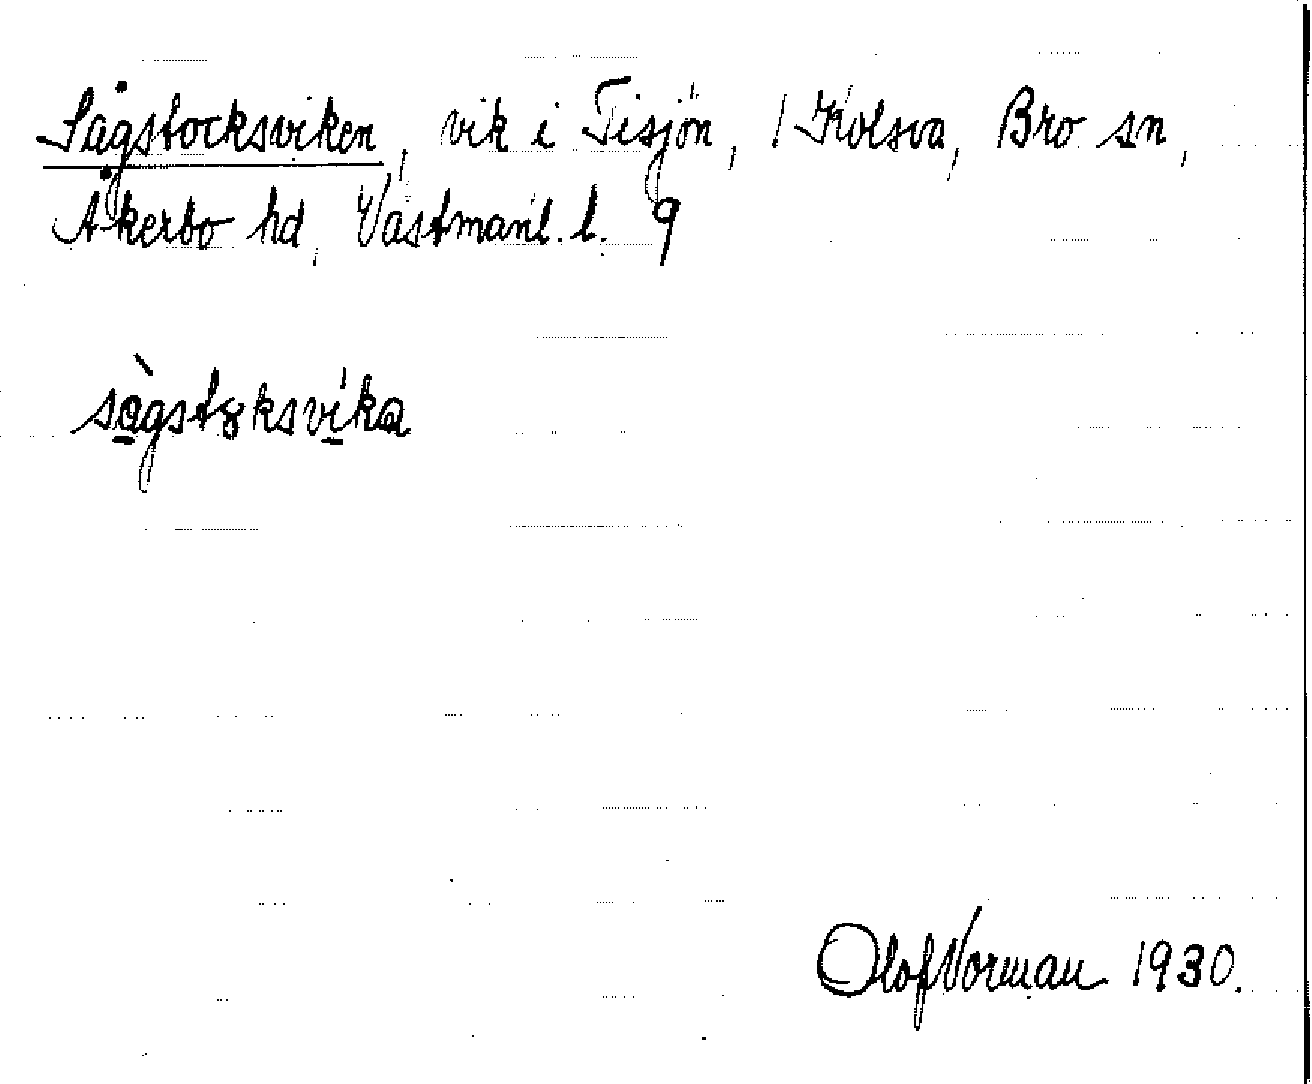 Sågstocksviken, vik i Tisjön, / Kolsva, Bro sn,
Åkerbo hd, Västmanl. l. 9
så̀gstȣksvíka
Olof Norman 1930.